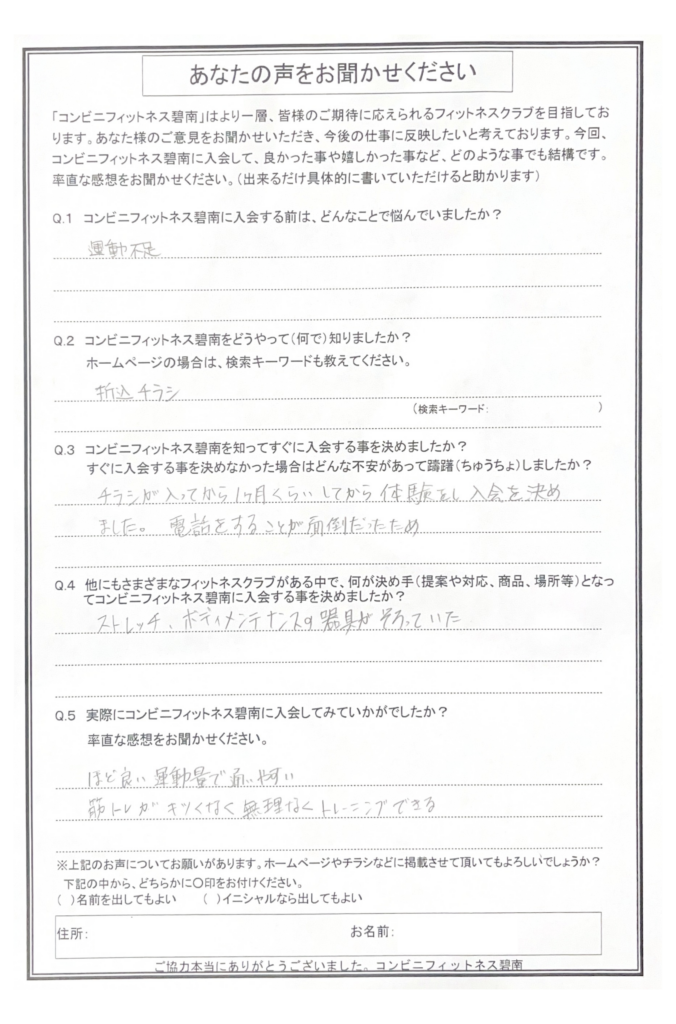 あなたの声をお聞かせください
「コンビニフィットネス碧南」はより一層、皆様のご期待に応えられるフィットネスクラブを目指してお
ります。あなた様のご意見をお聞かせいただき、今後の仕事に反映したいと考えております。今回、
コンビニフィットネス碧南に入会して、良かった事や嬉しかった事など、どのような事でも結構です。
率直な感想をお聞かせください。(出来るだけ具体的に書いていただけると助かります)
Q.1 コンビニフィットネス碧南に入会する前は、どんなことで悩んでいましたか?
運動不足
Q.2 コンビニフィットネス碧南をどうやって(何で)知りましたか?
ホームページの場合は、検索キーワードも教えてください。
折込チラシ
(検索キーワード: )
Q.3 コンビニフィットネス碧南を知ってすぐに入会する事を決めましたか?
すぐに入会する事を決めなかった場合はどんな不安があって躊躇(ちゅうちょ)しましたか?
チラシが入ってから1ヶ月くらいしてから体験をし入会を決め
ました。 電話をすることが面倒だったため
Q.4 他にもさまざまなフィットネスクラブがある中で、何が決め手(提案や対応、商品、場所等)となっ
てコンビニフィットネス碧南に入会する事を決めましたか?
ストレッチ、ボディメンテナンスの器具がそろっていた
Q.5 実際にコンビニフィットネス碧南に入会してみていかがでしたか?
率直な感想をお聞かせください。
ほど良い運動量で通いやすい
筋トレがキツくなく無理なくトレーニングできる
※上記のお声についてお願いがあります。ホームページやチラシなどに掲載させて頂いてもよろしいでしょうか?
下記の中から、どちらかに〇印をお付けください。
( )名前を出してもよい ( )イニシャルなら出してもよい
住所: お名前:
ご協力本当にありがとうございました。コンビニフィットネス碧南